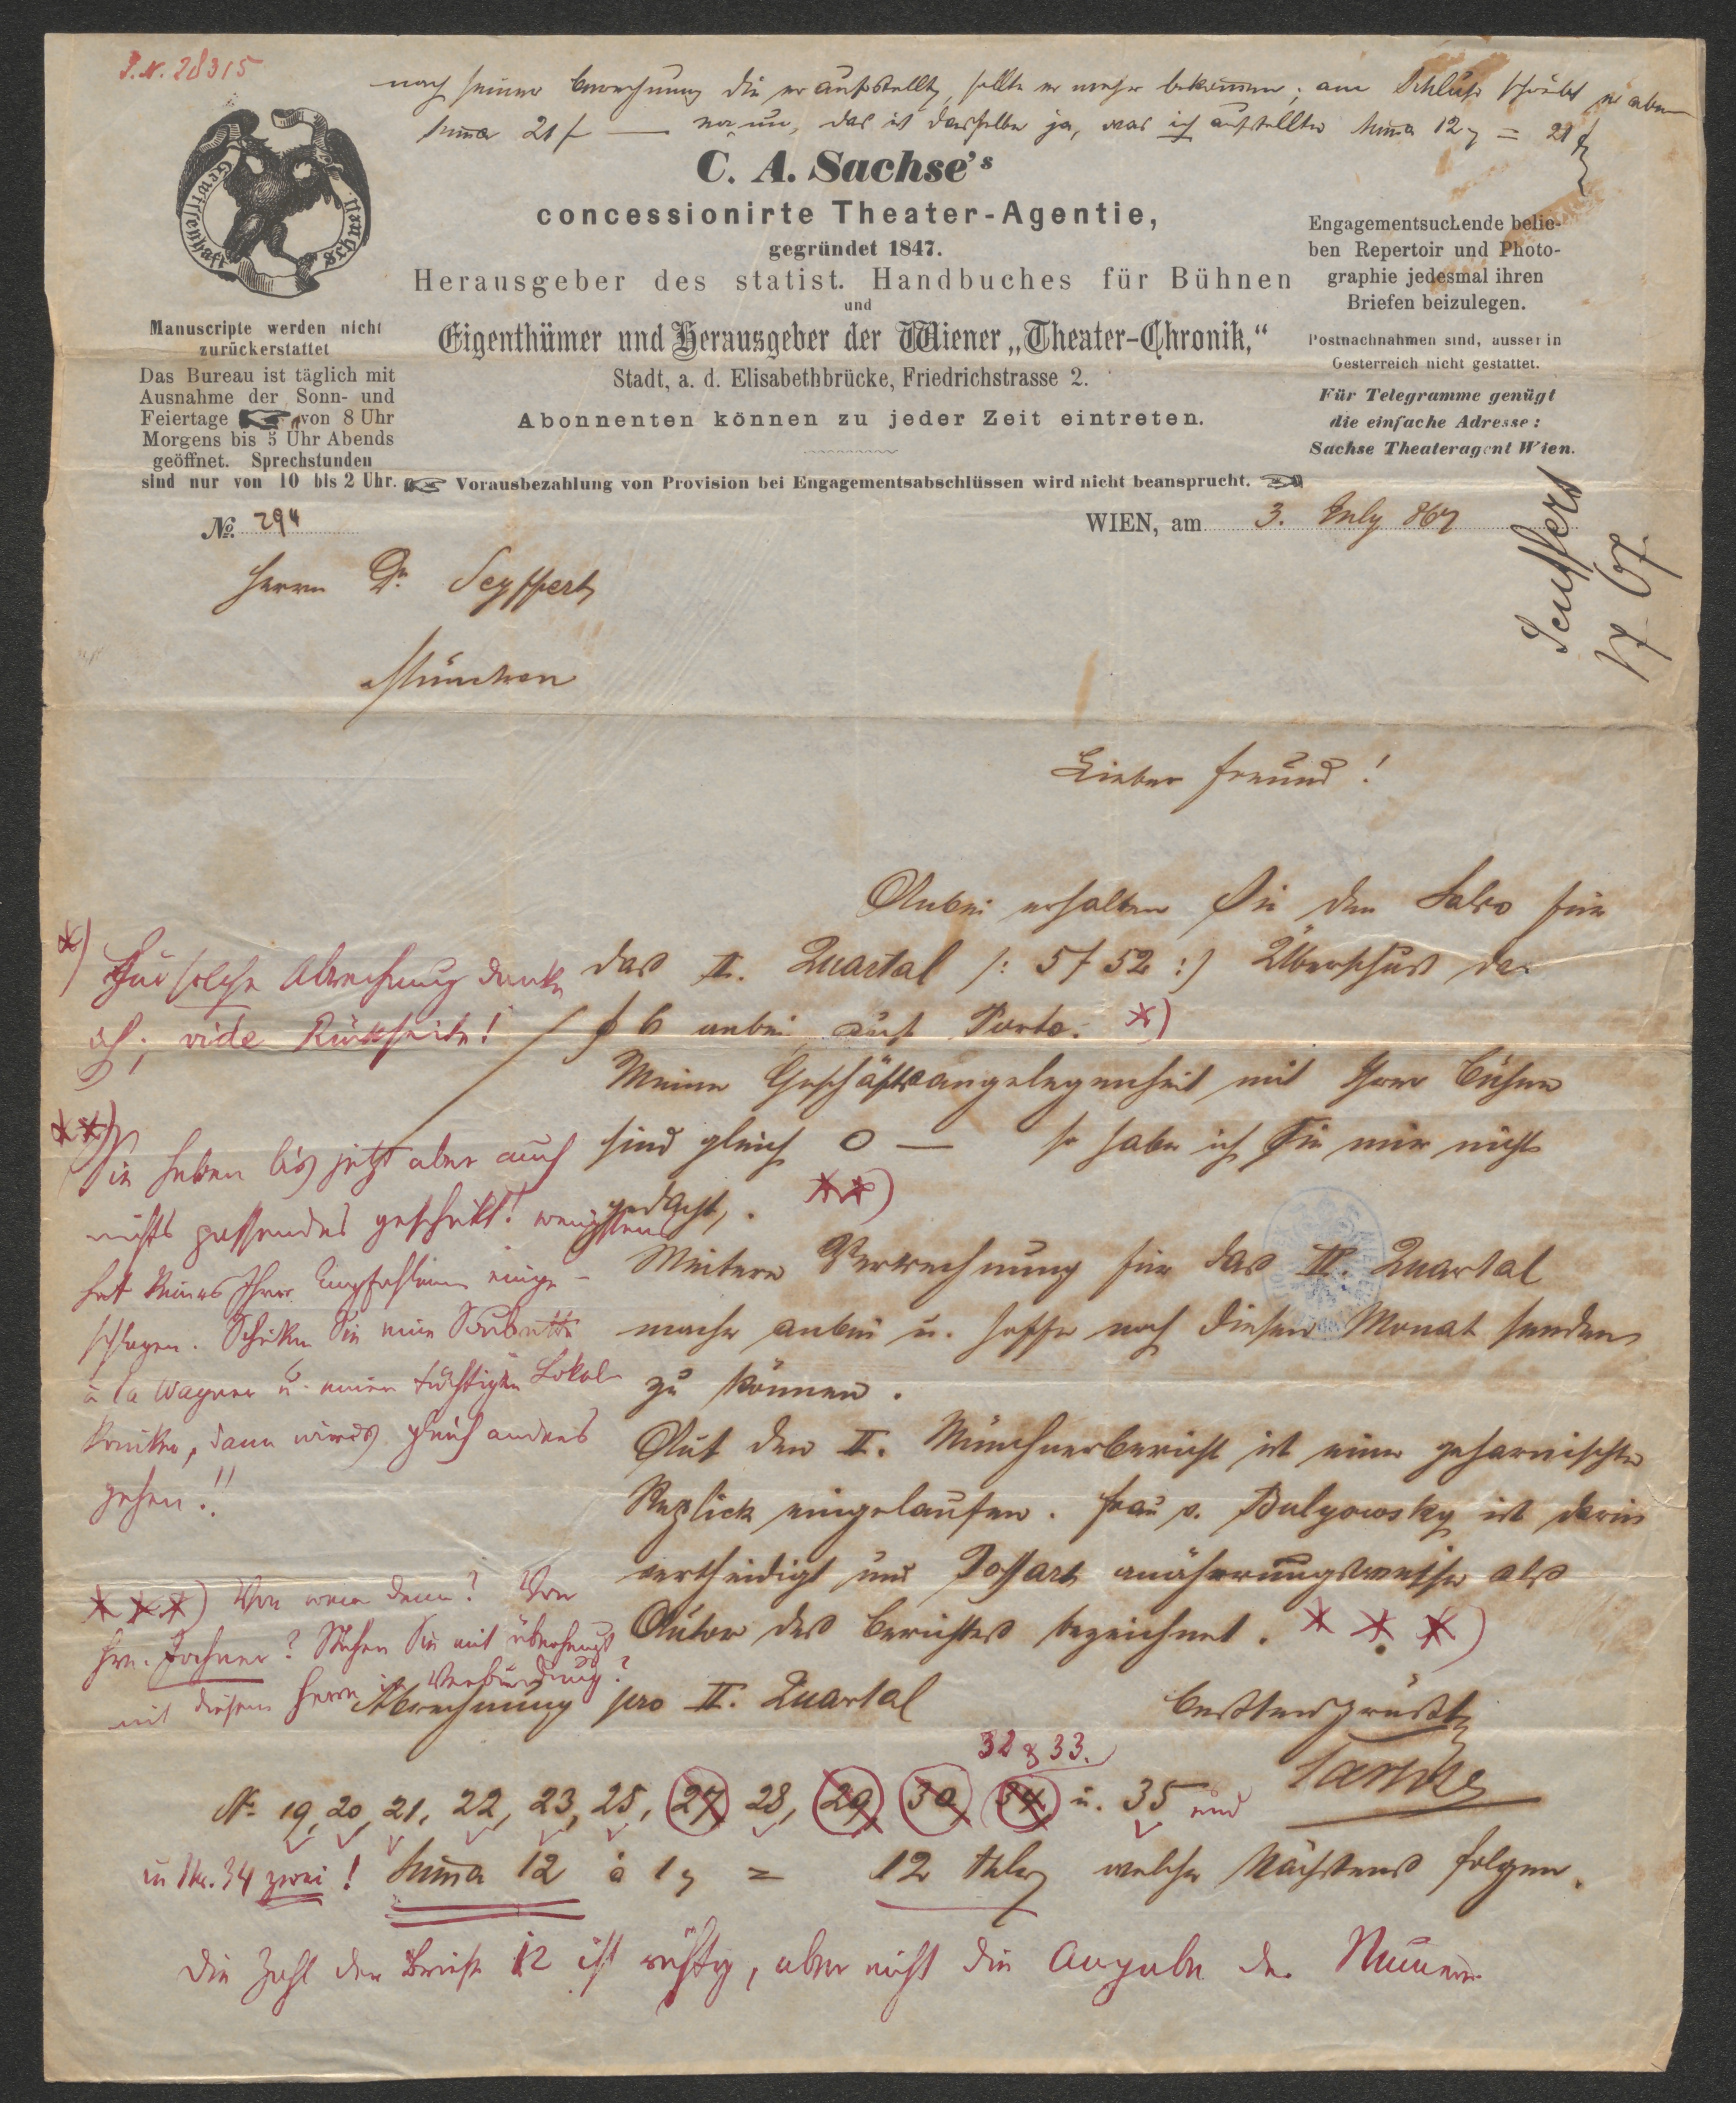 J. N. 28315
nach seiner Berechnung die er aufstellt, sollte er mehr bekommen; am Schluße schreibt er aber
Suma 21 f — das ist dasselbe ja, was ich aufstellte Suma 12 = 21 f
Gewissenhaft Schnell
C. A. Sachse's
concessionirte Theater-Agentie,
gegründet 1847.
Herausgeber des statist. Handbuches für Bühnen
und
Eigenthümer und Herausgeber der Wiener „Theater-Chronik,“
Stadt, a. d. Elisabethbrücke, Friedrichstrasse 2.
Abonnenten können zu jeder Zeit eintreten.
Manuscripte werden nicht
zurückerstattet
Das Bureau ist täglich mit
Ausnahme der Sonn- und
Feiertage von 8 Uhr
Morgens bis 5 Uhr Abends
geöffnet. Sprechstunden
sind nur von 10 bis 2 Uhr.
Engagementsuchende belie-
ben Repertoir und Photo-
graphie jedesmal ihren
Briefen beizulegen.
Postnachnahmen sind, ausser in
Oesterreich nicht gestattet.
Für Telegramme genügt
die einfache Adresse:
Sachse Theateragent Wien.
Vorausbezahlung von Provision bei Engagementsabschlüssen wird nicht beansprucht.
No. 294
WIEN, am 3. July 867
Seuffert
/7 67.
Herrn Dr. Seyffert
München
Lieber Freund!
Anbei erhalten Sie den Saldo für
das II. Quartal /: 5 f 52 :/ Überschuß der
f 6 anbei auf Porto. *)
Meine Geschäftsangelegenheit mit Ihrer Bühne
sind gleich 0 — so habe ich Sie mir nicht
gedacht. **)
Weitere Verrechnung für das II. Quartal
mache anbei u. hoffe noch diesen Monat senden
zu können.
Auf den II. Münchnerbericht ist eine geharnischte
Replick eingelaufen. Frau v. Bulyowsky ist darin
vertheidigt und Possart annäherungsweise als
Autor des Berichtes bezeichnet. ***)
*) Für solche Abrechnung danke
ich; vide Rückseite!
**) Sie haben bis jetzt aber auch
nichts passendes geschickt! wenigstens
hat keines Ihrer Empfohlenen einge-
schlagen. Schicken Sie eine Soubrette
à la Wagner u. einen tüchtigen Lokal-
komiker, dann wirds gleich anders
gehen!!
***) Von wem denn? Von
Hrn. Jochner? Stehen Sie mit überhaupt
mit diesem Herrn in Verbindung?
Abrechnung pro II. Quartal
bestens grüßt
Sachse
32 & 33.
No. 19, 20, 21, 22, 23, 25, 27 28, 29 30 34 u. 35 und
in Nr. 34 zwei! Suma 12 à 1 = 12 Thlr welche Nächstens folgen.
Die Zahl der Briefe 12 ist richtig, aber nicht die Angabe der Numern.